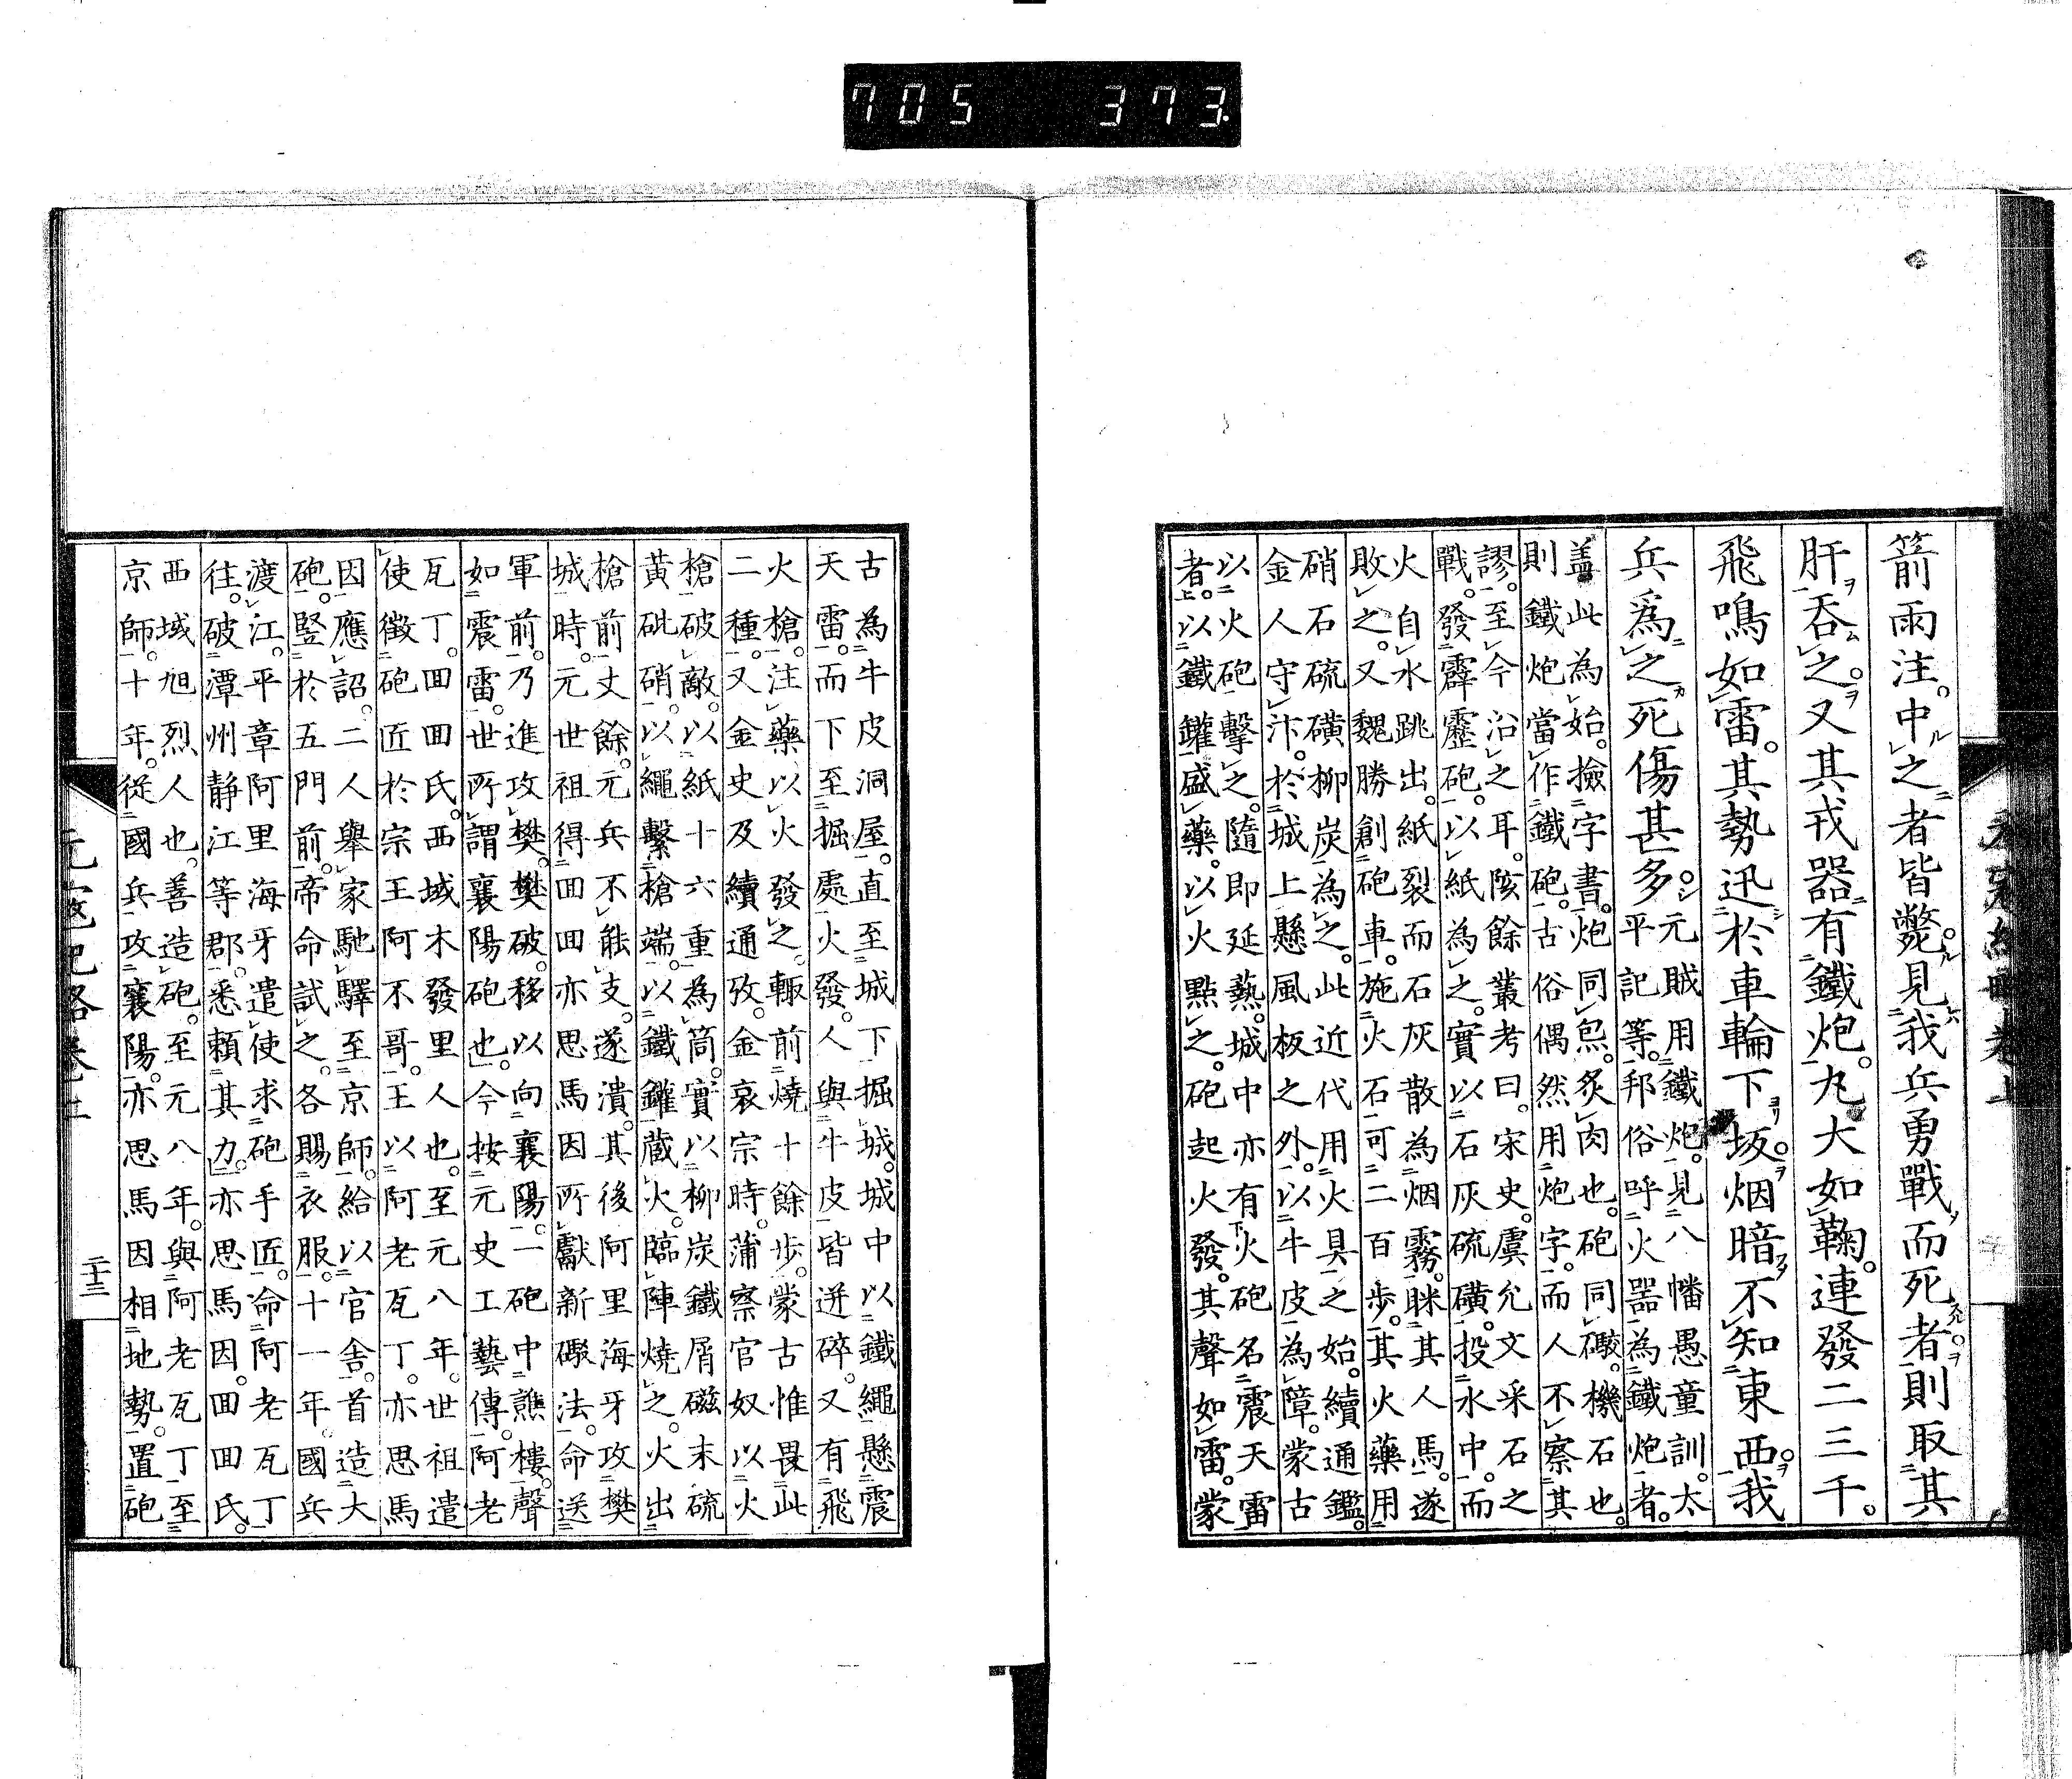 705 373
箭雨注。中之者皆斃。見我兵勇戰而死者。則取其
肝吞之。又其戎器有鐵炮。丸大如鞠。連發二三千。
飛鳴如雷。其勢迅於車輪下坂。烟暗不知東西。我
兵為之死傷甚多。
元賊用鐵炮。見八幡愚童訓。太
平記等。邦俗呼火器為鐵炮者。
盖此為始。撿字書。炮同炰。炙肉也。砲同礮。機石也。
則鐵炮當作鐵砲。古俗偶然用炮字。而人不察其
謬。至今沿之耳。陔餘叢考曰。宋史。虞允文采石之
戰。發霹靂砲。以紙為之。實以石灰硫磺。投水中。而
火自水跳出。紙裂而石灰散為烟霧。眯其人馬。遂
敗之。又魏勝創砲車。施火石可二百步。其火藥用
硝石硫磺柳炭為之。此近代用火具之始。續通鑑。
金人守汴。於城上懸風板之外。以牛皮為障。蒙古
以火砲擊之。隨即延爇。城中亦有火砲名震天雷
者。以鐵罐盛藥。以火點之。砲起火發。其聲如雷。蒙
古為牛皮洞屋。直至城下掘城。城中以鐵繩懸震
天雷。而下至掘處。火發。人與牛皮皆迸碎。又有飛
火槍。注藥以火發之。輙前燒十餘步。蒙古惟畏此
二種。又金史及續通攷。金哀宗時。蒲察官奴以火
槍破敵。以紙十六重為筒。實以柳炭鐵屑磁末硫
黃砒硝。以繩繫槍端。以鐵鑵藏火。臨陣燒之。火出
槍前丈餘。元兵不能支。遂潰。其後阿里海牙攻樊
城時。元世祖得回回亦思馬因所獻新礮法。命送
軍前。乃進攻樊。樊破。移以向襄陽。一砲中譙樓。聲
如震雷。世所謂襄陽砲也。今按元史工藝傳。阿老
瓦丁。回回氏。西域木發里人也。至元八年。世祖遣
使徵砲匠於宗王阿不哥。王以阿老瓦丁。亦思馬
因應詔。二人舉家馳驛至京師。給以官舍。首造大
砲。竪於五門前。帝命試之。各賜衣服。十一年。國兵
渡江。平章阿里海牙遣使求砲手匠。命阿老瓦丁
往。破潭州靜江等郡。悉賴其力。亦思馬因。回回氏。
西域旭烈人也。善造砲。至元八年。與阿老瓦丁至
京師。十年。從國兵攻襄陽。亦思馬因相地勢。置砲
元寇紀略卷上
二十三